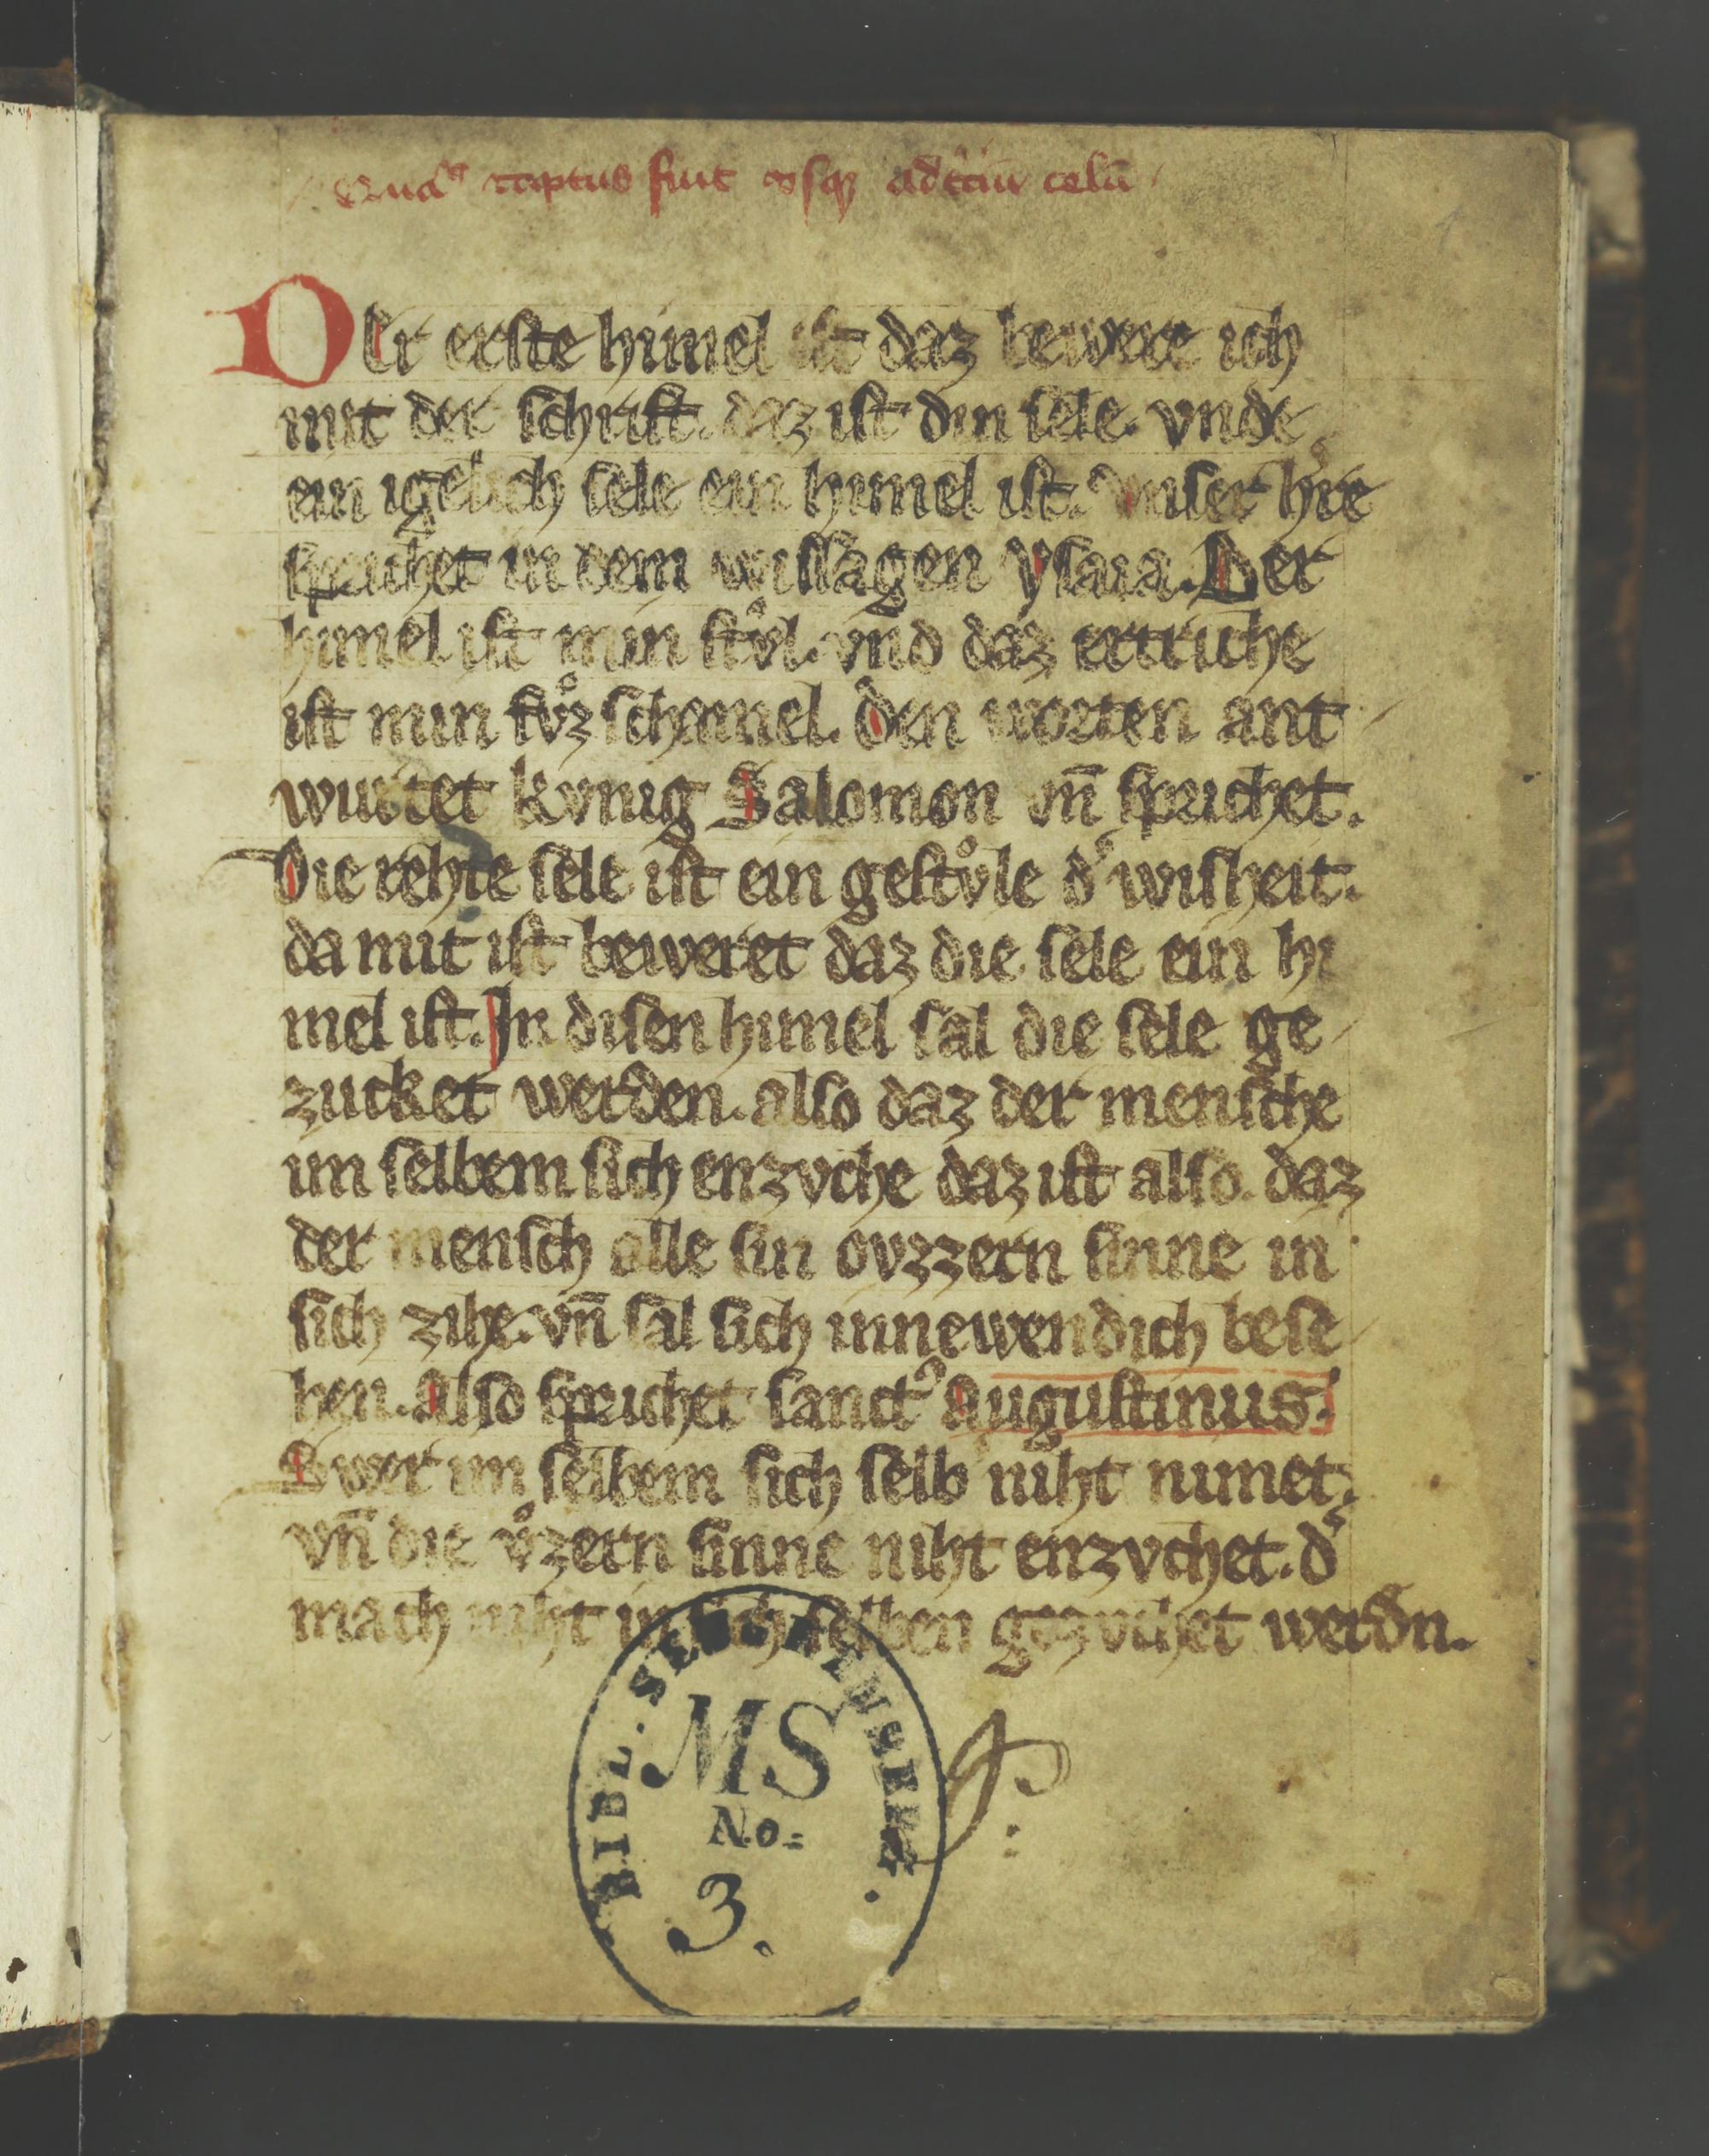 raptus fuit vsq; ad t̾ciū celū
DEr erste himel ist daz bewere ich
mit der schrift. daz ist din sele. vnde
ein igelich sele ein himel ist. vnser h̾re
sprichet in dem wissagen ysaia. Der
himel ist min stvͦl. vnd daz ertriche
ist min fvͦzschemel. Den worten ant
wurtet kvnig Salomon vn̄ sprichet.
Die rehte sele ist ein gestvͦle d̾ wisheit.
da mit ist beweret daz die sele ein hi
mel ist. In disen himel sal die sele ge
zucket werden. also daz der mensche
im selbem sich enzvche daz ist also. daz
der mensch alle sin ovzzern sinne in
sich zihe. vn̄ sal sich innewendich bese
hen. Also sprichet sanct̾ Augustinus.
Swer im selbem sich selb niht nimet.
vn̄ die vͦzern sinne niht enzvchet. d̾
mach niht in sich selben gezvchet werdn̄.
MS
No=
3.